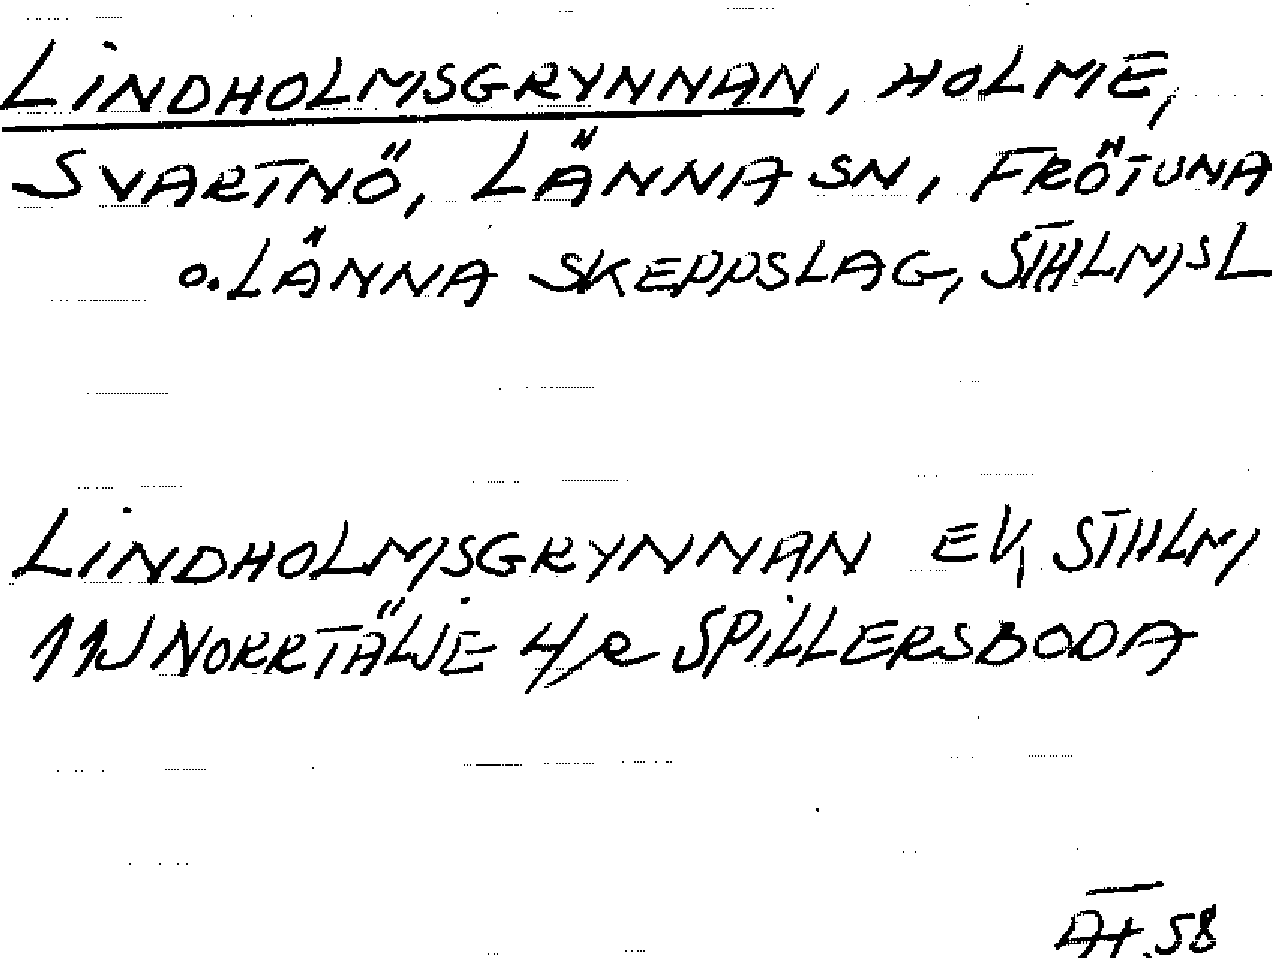 LINDHOLMSGRYNNAN, HOLME,
SVARTNÖ, LÄNNA SN, FRÖTUNA
O. LÄNNA SKEPPSLAG, STHLMSL
LINDHOLMSGRYNNAN EV, STHLM
11J NORRTÄLJE 4/R SPILLERSBODA
AT. 58